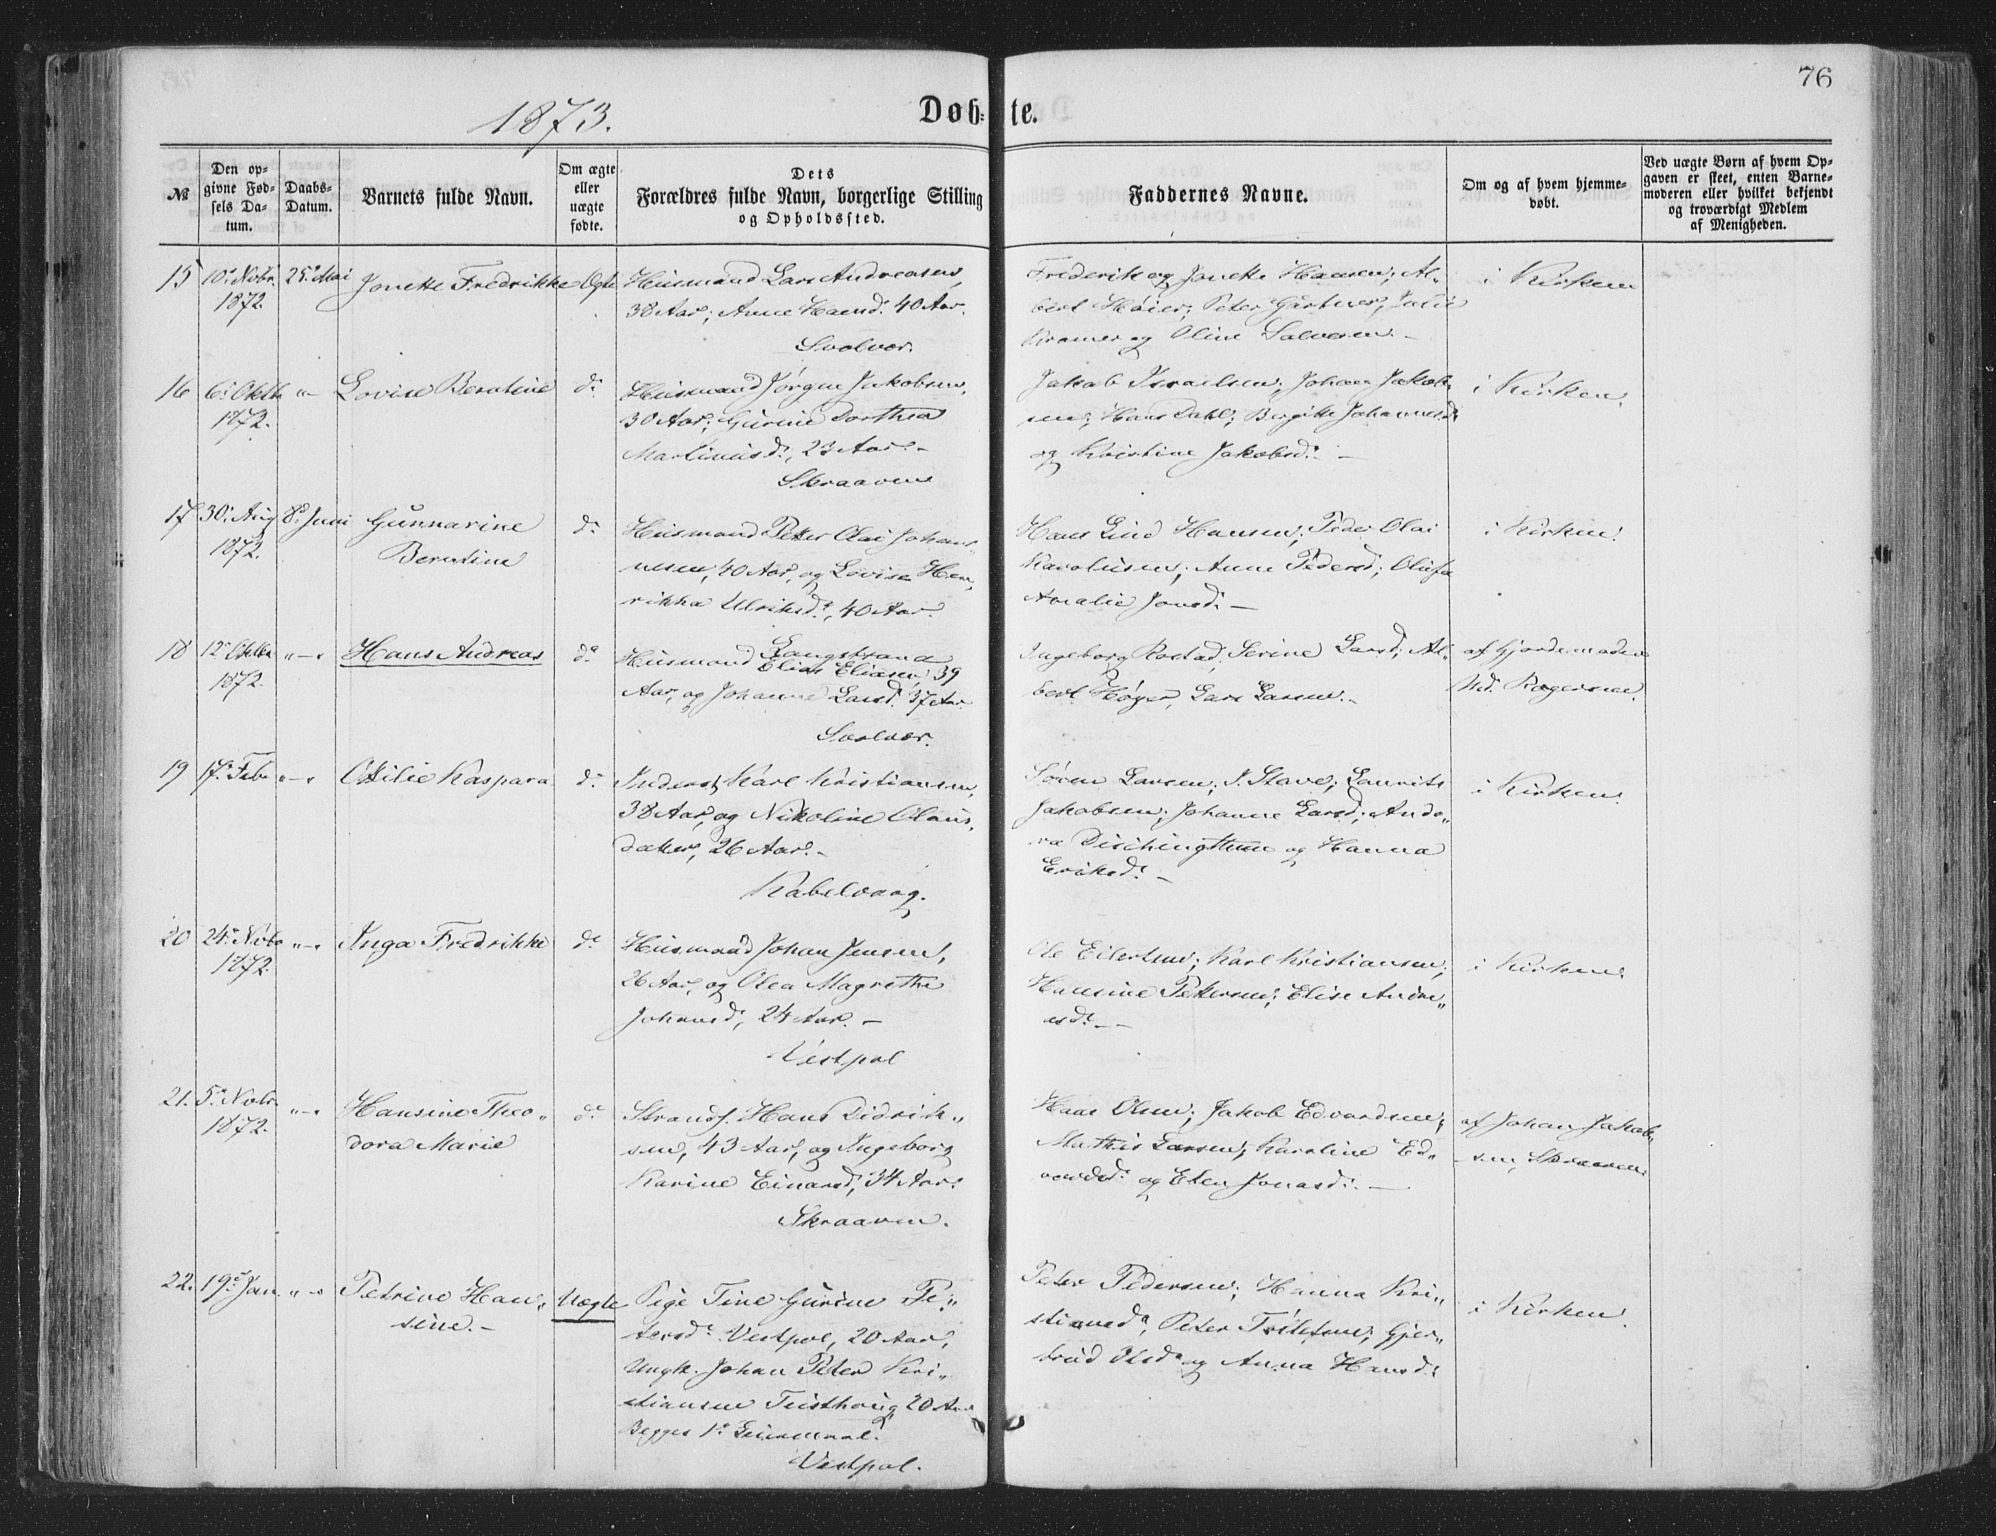 76
1873.
Døb-te.
№
Den opgivne Fødsels Datum.
Daabs-Datum.
Barnets fulde Navn.
Om ægte eller uægte fødte.
Dets Forældres fulde Navn, borgerlige Stilling og Opholdssted.
Faddernes Navne.
Om og af hvem hjemmedøbt.
Ved uægte Børn af hvem Opgaven er skeet, enten Barnemoderen eller hvilket bekjendt og troværdigt Medlem af Menigheden.
15 10de Novbr. 1872. 25de Mai Jonette Fredrikke Ægte
Husmand Lars Andreasen,
38 Aar; Anne Hansd. 40 Aar.
Svolvær.
Frederik og Jonette Hansen; Al-
bert Høier; Peter Gartner, Julie
Kramer og Oline Salvesen. –
i Kirken
16 6te Oktb. 1872. "– Lovise Berntine do
Husmand Jørgen Jakobsen,
30 Aar; Gurine Dorthea
Martinusd., 23 Aar. –
Skraaven
Jakob Israelsen; Johan Jakob-
sen; Hans Dahl; Birgitte Johannesd.
og Kristine Jakobsd. –
i Kirken.
17 30te Aug 1872. 8de Juni Gunnarine
Berntine
do
Husmand Peter Olai Johan-
nesen, 40 Aar, og Lovise Hen-
rikka Ulriksd., 40 Aar.
Hans Lind Hansen; Peder Olai
Karolusen; Anne Pedersd; Olufa
Amalie Jonsd. –
i Kirken.
18 12te Oktbr 1872. "–" Hans Andreas do
Husmand Elias Eliasen, 39
Aar, og Johanne Larsd. 37 Aar.
Svolvær.
Ingeborg Rostad; Serine Larsd; Al-
bert Høyer, Lars Larsen. –
af Gjordemoder
Rogersen.
19 17de Feb. "–" Ottilie Kaspara do
Inderst Karl Kristiansen,
38 Aar, og Nikoline Olaus-
datter, 26 Aar. –
Kabelvaag.
Søren Larsen; J. Stave; Laurits
Jakobsen; Johanne Larsd; Ando-
ra og Hanna
Eriksd. –
i Kirken.
20 24de Novbr 1872. "–" Inga Fredrikke do
Husmand Johan Jensen,
26 Aar, og Olea Magrethe
Johansd, 24 Aar. –
Vestpol
Ole Eilertsen; Karl Kristiansen;
Hansine Pettersen; Elise Andre-
asd. –
i Kirken.
21. 5te Novbr. 1872. "–" Hansine Theo-
dora Marie
do
Strands. Hans Didrik-
sen, 43 Aar, og Ingeborg
Karine Einarsd, 34 Aar.
Skraaven.
Hans Olsen; Jakob Edvardsen;
Mathis Larsen; Karoline Ed-
vardsd. og Elen Jonasd. –
af Johan Jakob-
sen, Skraaven
22. 19de Jan. "–" Petrine Han-
sine. –
Uægte
Pige Tine Gurine Pe-
tersd. Vestpol, 20 Aar,
Ungk. Johan Peter Kri-
stiansen Teisthoug 20 Aar
Begges 1ste Leiermaal.
Vestpol.
Peter Pedersen; Hanna Kri-
stiansd, Peter Tøllefsen; Gjer-
trud Olsd og Anna Hansd.
i Kirken.